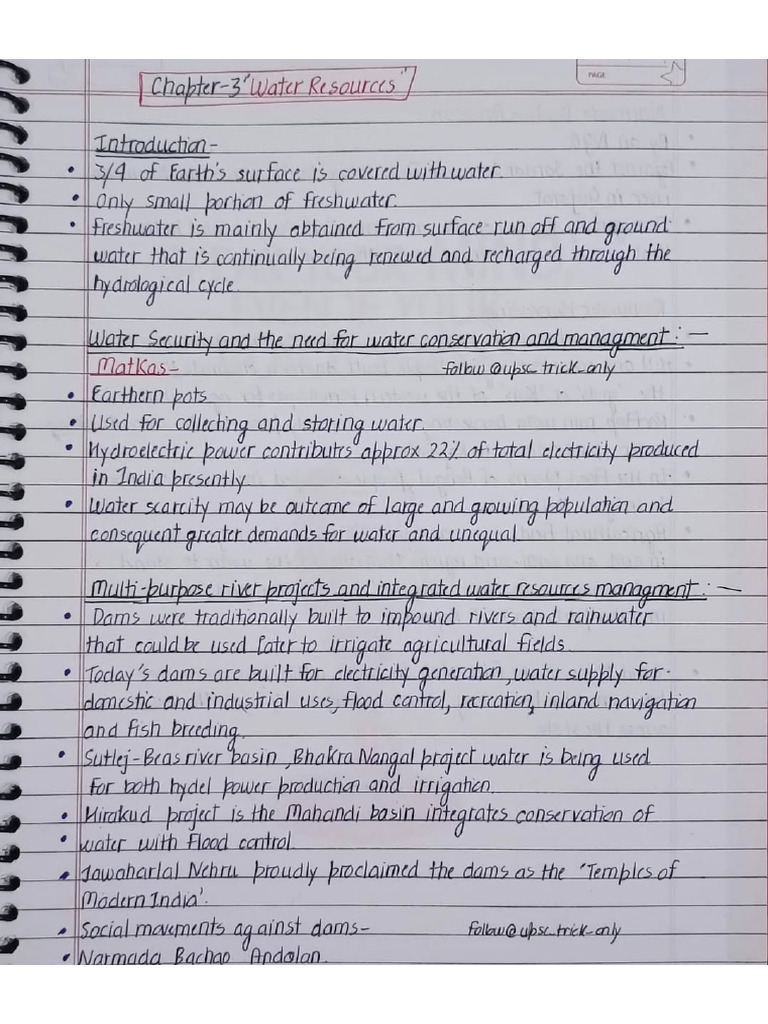 PAGE
Chapter-3 "Water Resources"
Introduction-
• 3/4 of Earth's surface is covered with water.
• Only small portion of freshwater.
• freshwater is mainly obtained from surface run off and ground
water that is continually being renewed and recharged through the
hydrological cycle.
Water Security and the need for water conservation and managment:-
Matkas- follow @upsc_trick_only
• Earthern pots
• Used for collecting and storing water.
• Hydroelectric power contributes approx 22% of total electricity produced
in India presently.
• Water scarcity may be outcome of large and growing population and
consequent greater demands for water and unequal.
Multi-purpose river projects and integrated water resources managment:-
• Dams were traditionally built to impound rivers and rainwater
that could be used later to irrigate agricultural fields.
• Today's dams are built for electricity generation, water supply for
domestic and industrial uses, flood control, recreation, inland navigation
and fish breeding.
• Sutlej-Beas river basin, Bhakra Nangal project water is being used
for both hydel power production and irrigation.
• Hirakud project is the Mahandi basin integrates conservation of
• water with flood control.
• Jawaharlal Nehru proudly proclaimed the dams as the 'Temples of
Modern India'.
• Social movements against dams- follow@upsc_trick_only
• Narmada Bachao Andolan.